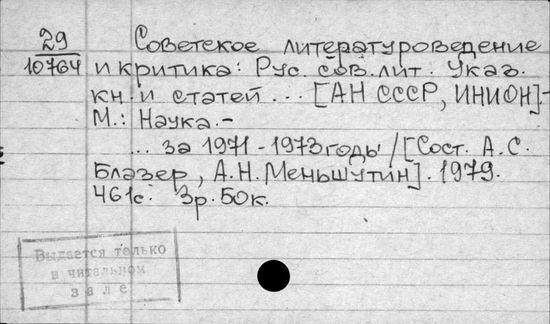 29
10764
Советское литературоведение
и критика: Рус. сов. лит. Указ.
кн. и статей ... [АН СССР, ИНИОН].-
М.: Наука.-
... за 1971-1973 годы / [Сост. А.С.
Блазер, А.Н. Меньшутин]. 1979.
461с. 3р. 50к.
Выдается только
в читальном
зале